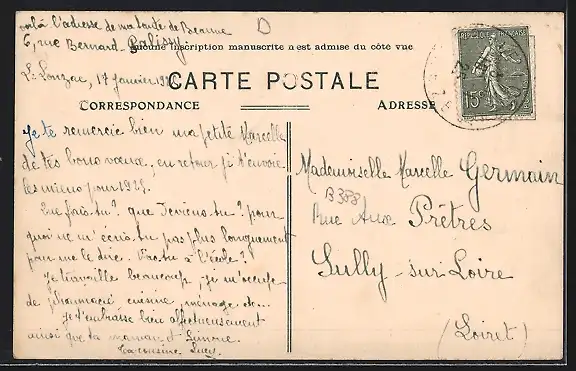 voilà l'adresse de ma tante de Beaune
6, rue Bernard-Palissy
D
Aucune inscription manuscrite n'est admise du côté vue
17 Janvier
CARTE POSTALE
CORRESPONDANCE
ADRESSE
REPUBLIQUE FRANÇAISE
15c
Je te remercie bien ma petite Marcelle
de tes bons vœux, en retour je t'envoie
les miens pour 1925.
Que fais-tu? que deviens-tu? pour
quoi ne m'écris-tu pas plus longuement
pour me le dire. Vas-tu à l'école?
Je travaille beaucoup je m'occupe
de pharmacie cuisine, ménage etc...
Je t'embrasse bien affectueusement
ainsi que ta maman et Simone.
Ta cousine Lucy.
Mademoiselle Marcelle Germain
B388
Rue Aux Prêtres
Sully-sur-Loire
(Loiret)